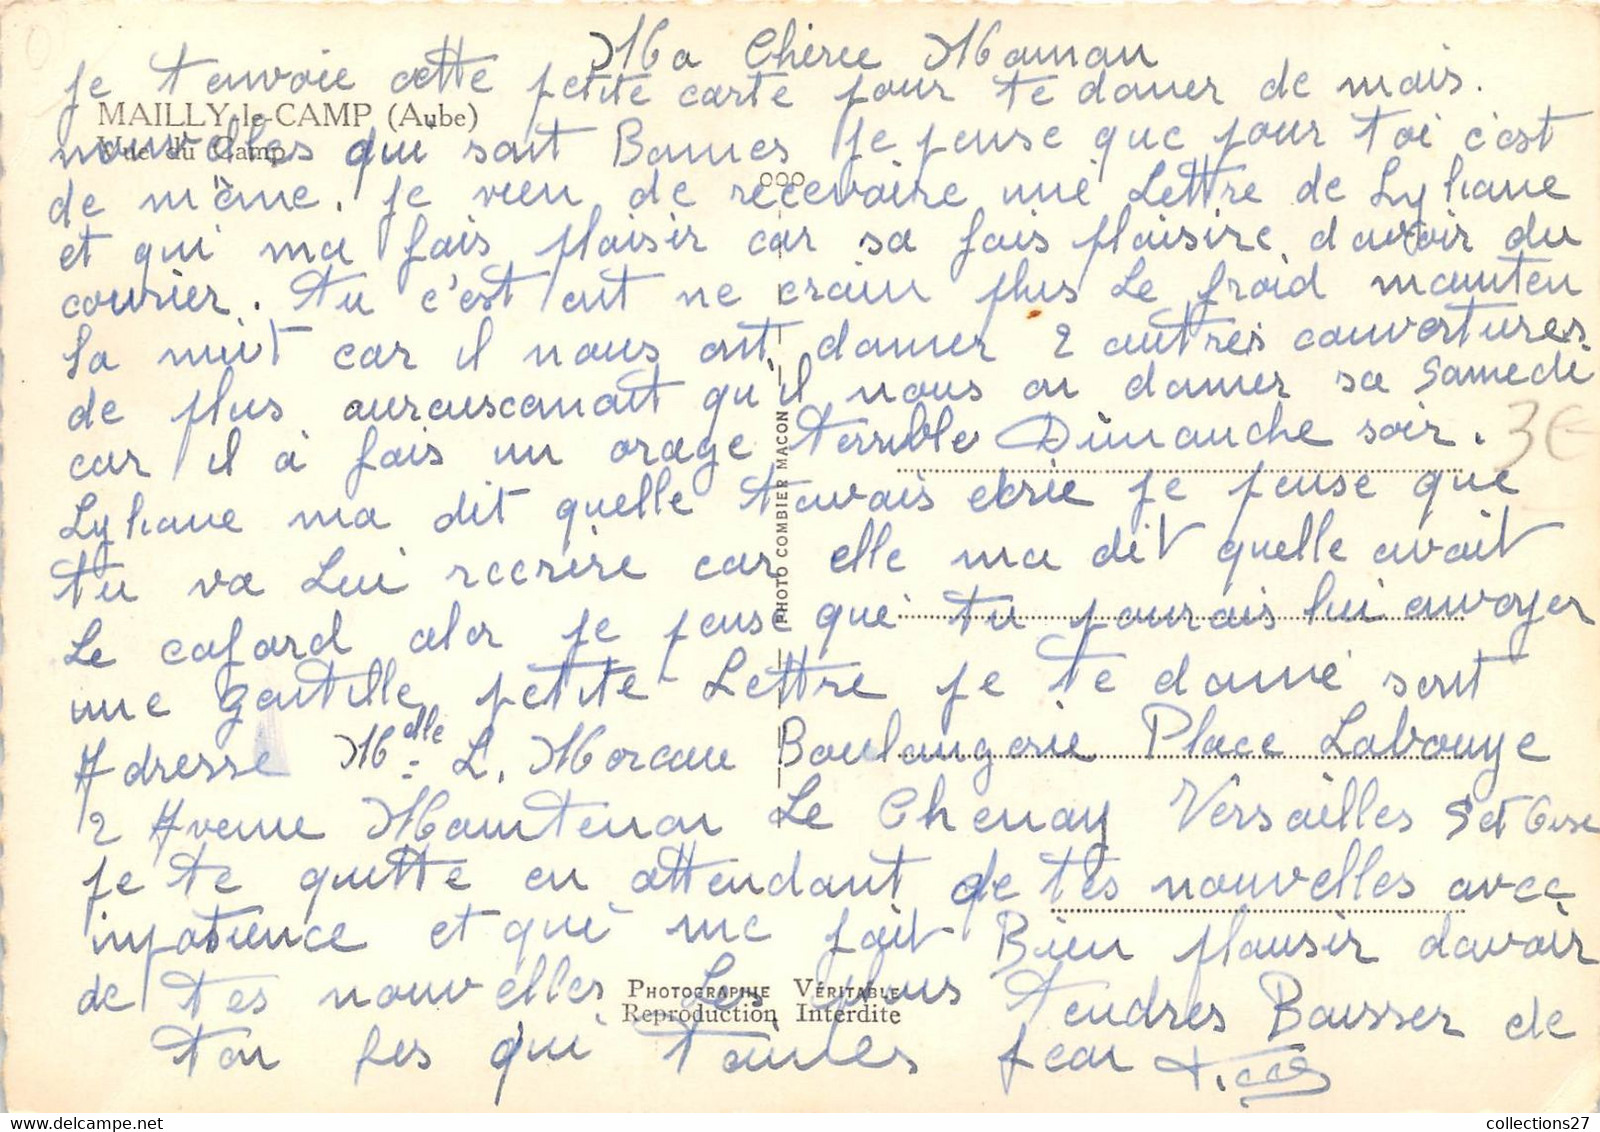 Ma Chèree Maman
Je t'envoie cette petite carte pour te doner de mais.
MAILLY-le-CAMP (Aube)
nouvelles qui sont Bonnes Je pense que pour toi c'est
Vue du Camp
de même. Je vien de recevoire une Lettre de Lyliane
et qui ma fais plaisir car sa fais plaisire d'avoir du
courier. Tu c'est ont ne crain plus Le froid mainten
la nuit car il nous ont donner 2 autres couvertures
de plus qu'il nous on donner sa Samedi
car il à fais un orage terrible Dimanche soir.
3€
Lyliane ma dit quelle t'avais ecrie Je pense que
tu va Lui reecrire car elle ma dit quelle avait
Le cafard alor je pense que tu pourais lui envoyer
une gentille petite Lettre je te donne sont
Adresse Melle L. Moreau Boulangerie Place Labouye
2 Avenue Maintenon Le Chenay Versailles S et Oise
Je te quitte en attendant de tes nouvelles avec
inpatience et qui me fait Bien plaisir davoir
de tes nouvelles Les plus tendres Baisser de
PHOTOGRAPHIE VÉRITABLE
Reproduction Interdite
Ton fis qui t'aimes Jean
PHOTO COMBIER MACON
collections27